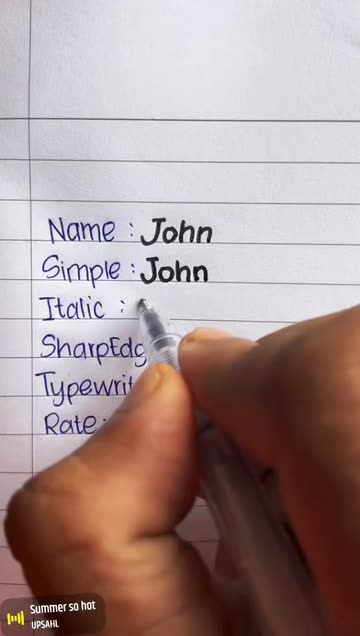 Name : John
Simple : John
Italic :
SharpEdg
Typewrit
Rate :
Summer so hot
UPSAHL